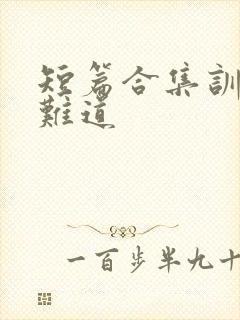 短篇合集訓
難道
一百步半九十